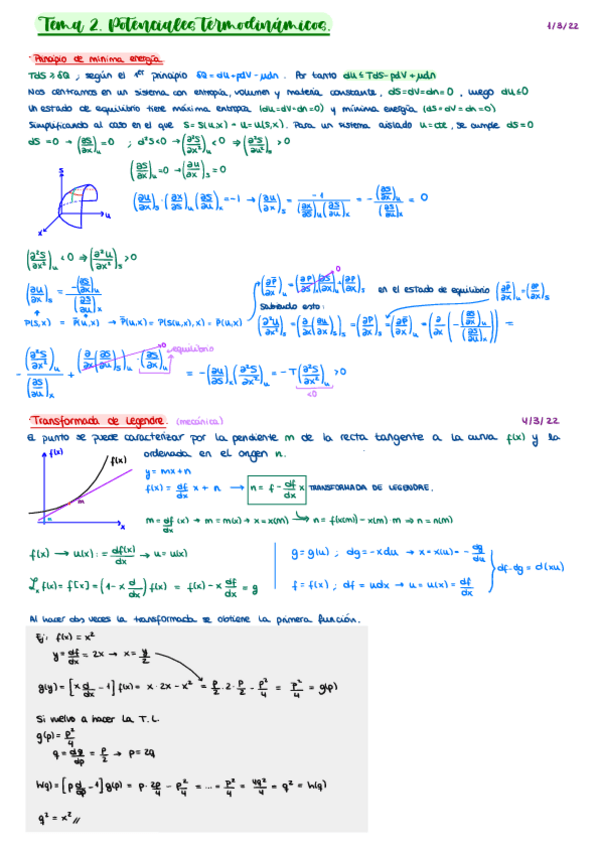 Tema 2. Potenciales termodinámicos.
1/3/22
· Principio de mínima energía.
TdS ≥ δQ ; según el 1er principio δQ = du+pdV-μdn . Por tanto du ≤ TdS-pdV+μdn
Nos centramos en un sistema con entropía, volumen y materia constante, dS=dV=dn=0 , luego du≤0
Un estado de equilibrio tiene máxima entropía (du=dV=dn=0) y mínima energía (dS=dV=dn=0)
Simplificando al caso en el que S=S(u,x) → u=u(S,x). Para un sistema aislado u=cte, se cumple dS=0
dS=0 → (∂S/∂x)_u = 0 ; d²S<0 → (∂²S/∂x²)_u < 0 ⇒ (∂²S/∂u²)_s > 0
(∂S/∂x)_u = 0 → (∂u/∂x)_s = 0
(∂u/∂x)_s (∂x/∂S)_u (∂S/∂u)_x = -1 → (∂u/∂x)_s = -1/((∂x/∂S)_u (∂S/∂u)_x) = -(∂S/∂x)_u/(∂S/∂u)_x = 0
S
u
x
(∂²S/∂x²)_u < 0 ⇒ (∂²u/∂x²)_s > 0
(∂u/∂x)_s = -(∂S/∂x)_u/(∂S/∂u)_x
(∂P̃/∂x)_u = (∂P/∂S)_x (∂S/∂x)_u + (∂P/∂x)_s
0
en el estado de equilibrio (∂P̃/∂x)_u = (∂P/∂x)_s
Sabiendo esto:
P(S,x) = P̃(u,x) → P̃(u,x) = P(S(u,x),x) = P̃(u,x)
(∂²u/∂x²)_s = (∂/∂x (∂u/∂x)_s)_s = (∂P/∂x)_s = (∂P̃/∂x)_u = (∂/∂x (-(∂S/∂x)_u/(∂S/∂u)_x))_u =
0 equilibrio
= -(∂u/∂S)_x (∂²S/∂x²)_u = -T(∂²S/∂x²)_u > 0
<0
· Transformada de Legendre. (mecánica)
4/3/22
El punto se puede caracterizar por la pendiente m de la recta tangente a la curva f(x) y la
ordenada en el origen n.
f(x)
f(x)
m
n
x
y = mx+n
f(x) = df/dx x + n → n = f - df/dx x TRANSFORMADA DE LEGENDRE.
m = df/dx (x) → m = m(x) → x = x(m) → n = f(x(m)) - x(m)·m ⇒ n = n(m)
f(x) → u(x) := df(x)/dx → u = u(x)
g = g(u) ; dg = -xdu → x = x(u) = -dg/du
df-dg = d(xu)
ℒₓ f(x) = f[x] = (1-x d/dx) f(x) = f(x) - x df/dx = g
f = f(x) ; df = udx → u = u(x) = df/dx
Al hacer dos veces la transformada se obtiene la primera función.
Ej: f(x) = x²
y = df/dx = 2x → x = y/2
g(y) = [x d/dx - 1] f(x) = x·2x - x² = p/2·2·p/2 - p²/4 = p²/4 = g(p)
Si vuelvo a hacer la T.L.
g(p) = p²/4
q = dg/dp = p/2 → p = 2q
h(q) = [p d/dp - 1] g(p) = p·2p/4 - p²/4 = ... = p²/4 = 4q²/4 = q² = h(q)
q² = x² //